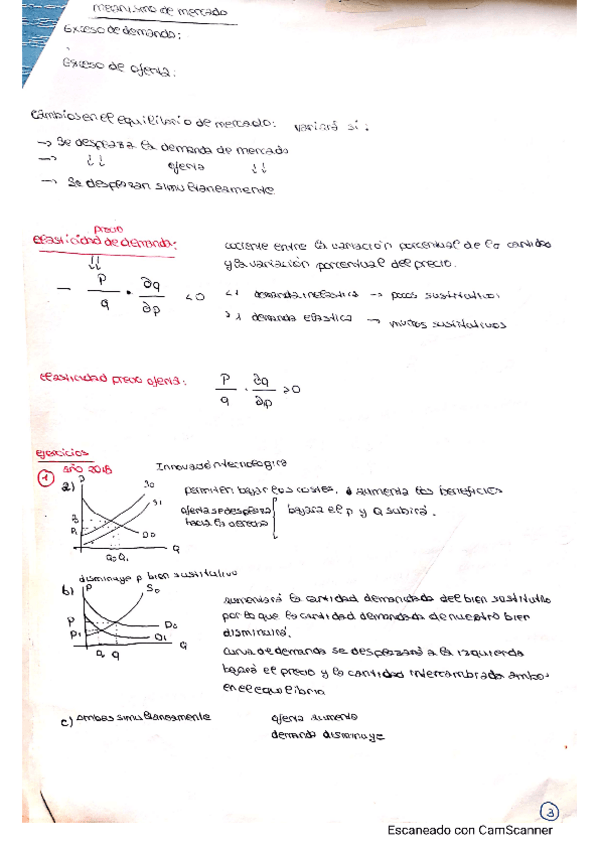 Mecanismo de mercado
Exceso de demanda:
Exceso de oferta:
Cambios en el equilibrio de mercado: variará si:
→ Se desplaza la demanda de mercado
→ ↓↓ oferta ↓↓
→ Se desplazan simultaneamente
precio
elasticidad de demanda: cociente entre la variación porcentual de la cantidad
y la variación porcentual del precio.
− P/q · ∂q/∂p <0
<1 demanda inelastica → pocos sustitutivos
>1 demanda elastica → muchos sustitutivos
elasticidad precio oferta: P/q · ∂q/∂p >0
ejercicios
① año 2018 Innovación tecnologica
a) P S0 S1 D0 Q
permiten bajar los costes, aumenta los beneficios
oferta se desplaza hacia la derecha bajara el p y Q subirá.
P0 P1 Q0 Q1
disminuye p bien sustitutivo
b) P S0 D0 D1 Q
P P1 Q1 Q
aumentará la cantidad demandada del bien sustitutivo
por lo que la cantidad demandada de nuestro bien
disminuirá.
curva de demanda se desplazará a la izquierda
bajará el precio y la cantidad intercambiada ambos
en el equilibrio
c) ambas simultaneamente oferta aumenta
demanda disminuye
3
Escaneado con CamScanner